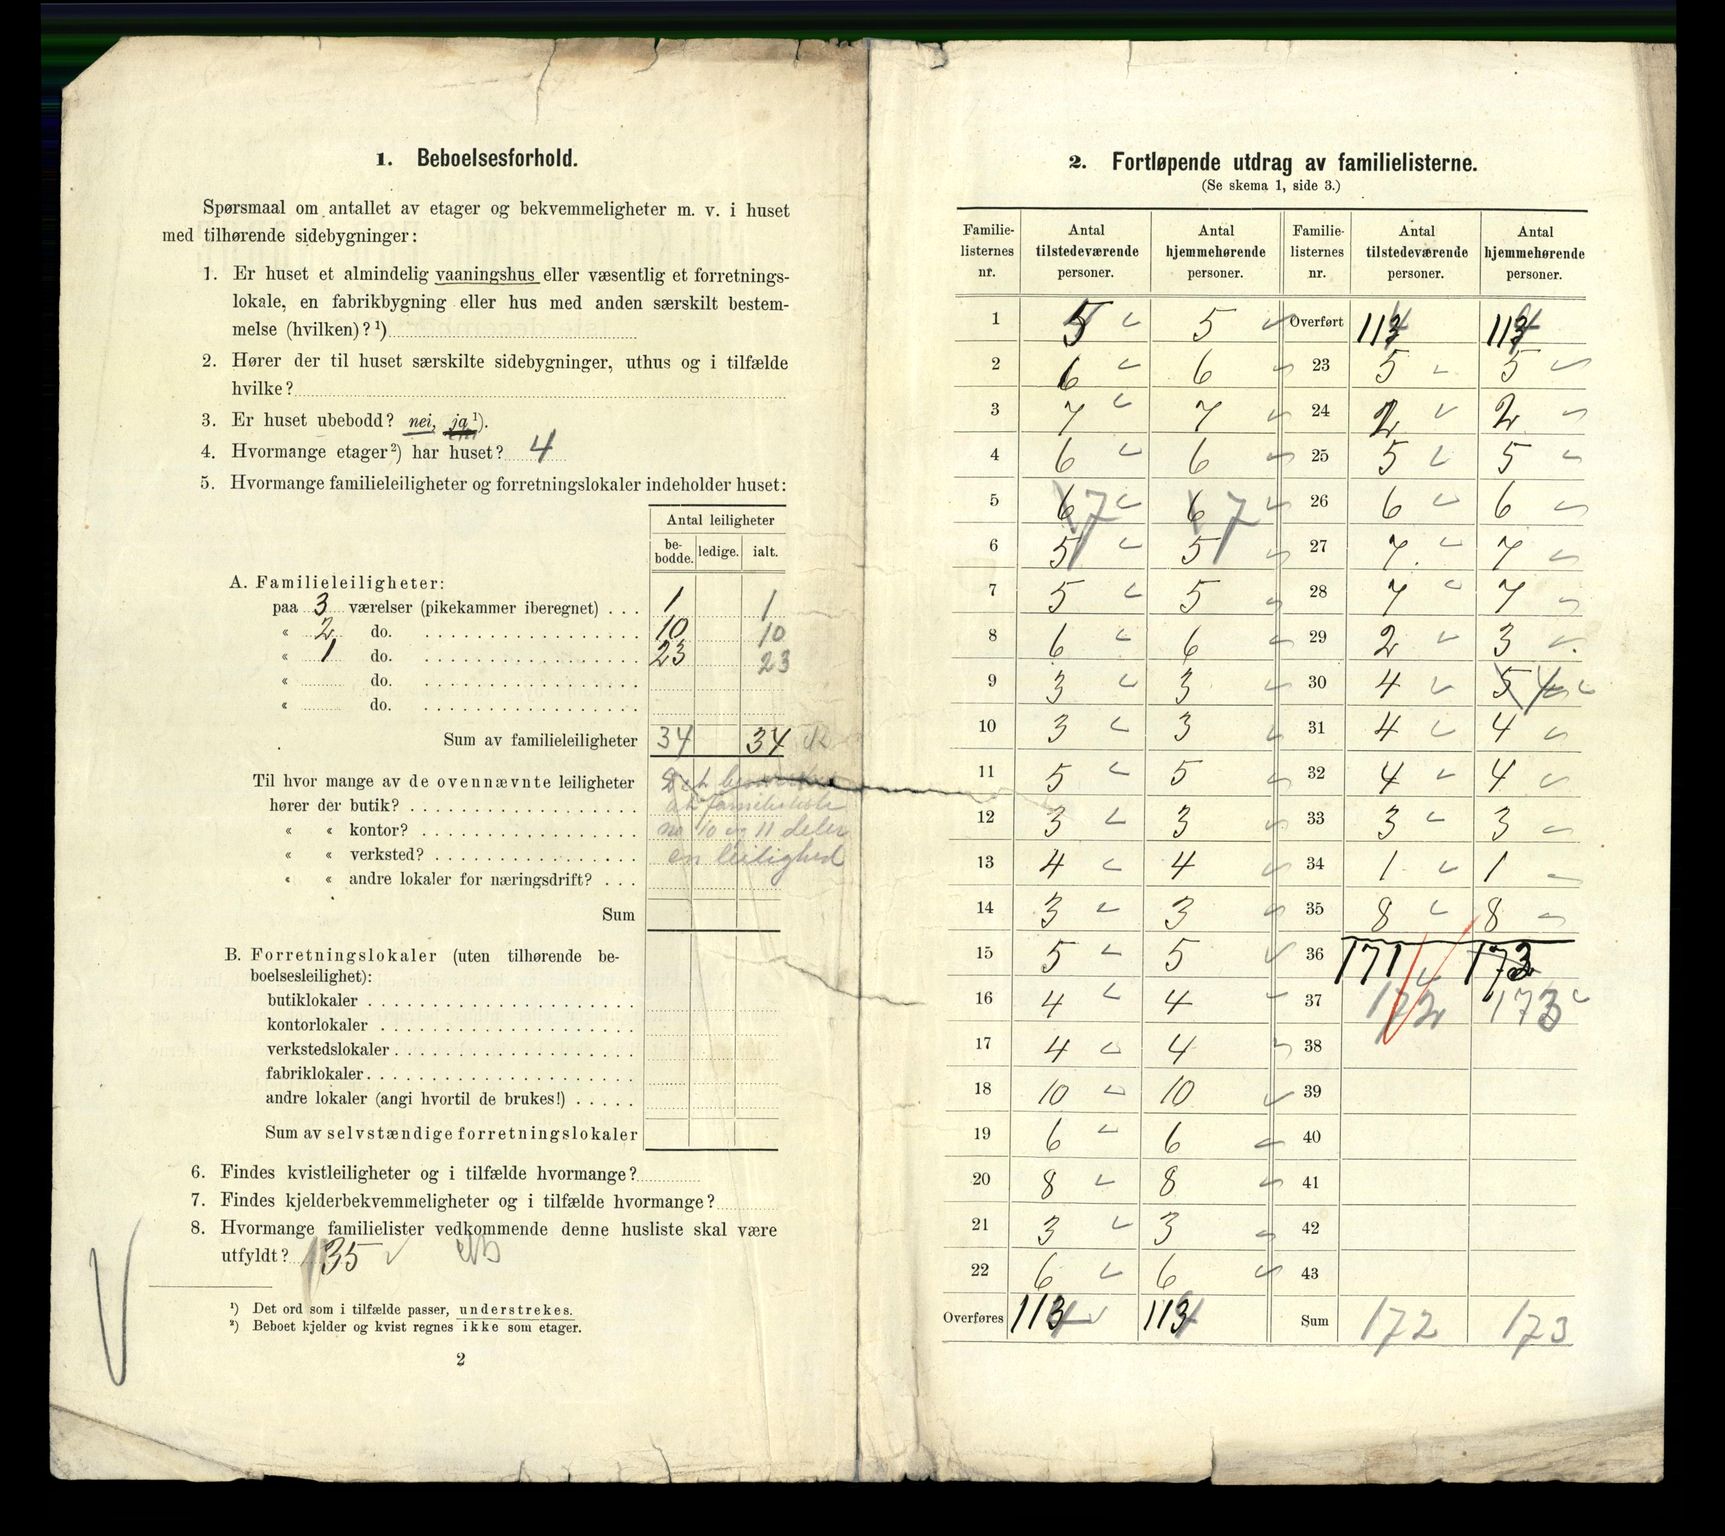 1. Beboelsesforhold.
Spørsmaal om antallet av etager og bekvemmeligheter m. v. i huset
med tilhørende sidebygninger:
1. Er huset et almindelig vaaningshus eller væsentlig et forretnings-
lokale, en fabrikbygning eller hus med anden særskilt bestem-
melse (hvilken)? ¹)
2. Hører der til huset særskilte sidebygninger, uthus og i tilfælde
hvilke?
3. Er huset ubebodd? nei, ja ¹).
4. Hvormange etager ²) har huset? 4
5. Hvormange familieleiligheter og forretningslokaler indeholder huset:
Antal leiligheter
be-
bodde. ledige. ialt.
A. Familieleiligheter:
paa 3 værelser (pikekammer iberegnet) . . . 1 1
« 2 do. 10 10
« 1 do. 23 23
« do.
« do.
Sum av familieleiligheter 34 34
Til hvor mange av de ovennævnte leiligheter
hører der butik?
« « kontor?
« « verksted?
« « andre lokaler for næringsdrift? . . .
Det
at familieliste
no 10 og 11 deler
en leilighed
Sum
B. Forretningslokaler (uten tilhørende be-
boelsesleilighet):
butiklokaler
kontorlokaler
verkstedslokaler
fabriklokaler
andre lokaler (angi hvortil de brukes!)
Sum av selvstændige forretningslokaler
6. Findes kvistleiligheter og i tilfælde hvormange?
7. Findes kjelderbekvemmeligheter og i tilfælde hvormange?
8. Hvormange familielister vedkommende denne husliste skal være
utfyldt? 35
¹) Det ord som i tilfælde passer, understrekes.
²) Beboet kjelder og kvist regnes ikke som etager.
2
2. Fortløpende utdrag av familielisterne.
(Se skema 1, side 3.)
Familie-
listernes
nr.
Antal
tilstedeværende
personer.
Antal
hjemmehørende
personer.
Familie-
listernes
nr.
Antal
tilstedeværende
personer.
Antal
hjemmehørende
personer.
1 5 5 Overført 114 114
2 6 6 23 5 5
3 7 7 24 2 2
4 6 6 25 5 5
5 6 7 6 7 26 6 6
6 5 5 27 7 7
7 5 5 28 7 7
8 6 6 29 2 3
9 3 3 30 4 5 4
10 3 3 31 4 4
11 5 5 32 4 4
12 3 3 33 3 3
13 4 4 34 1 1
14 3 3 35 8 8
15 5 5 36 171 173
16 4 4 37 172 173
17 4 4 38
18 10 10 39
19 6 6 40
20 8 8 41
21 3 3 42
22 6 6 43
Overføres 114 114 Sum 172 173